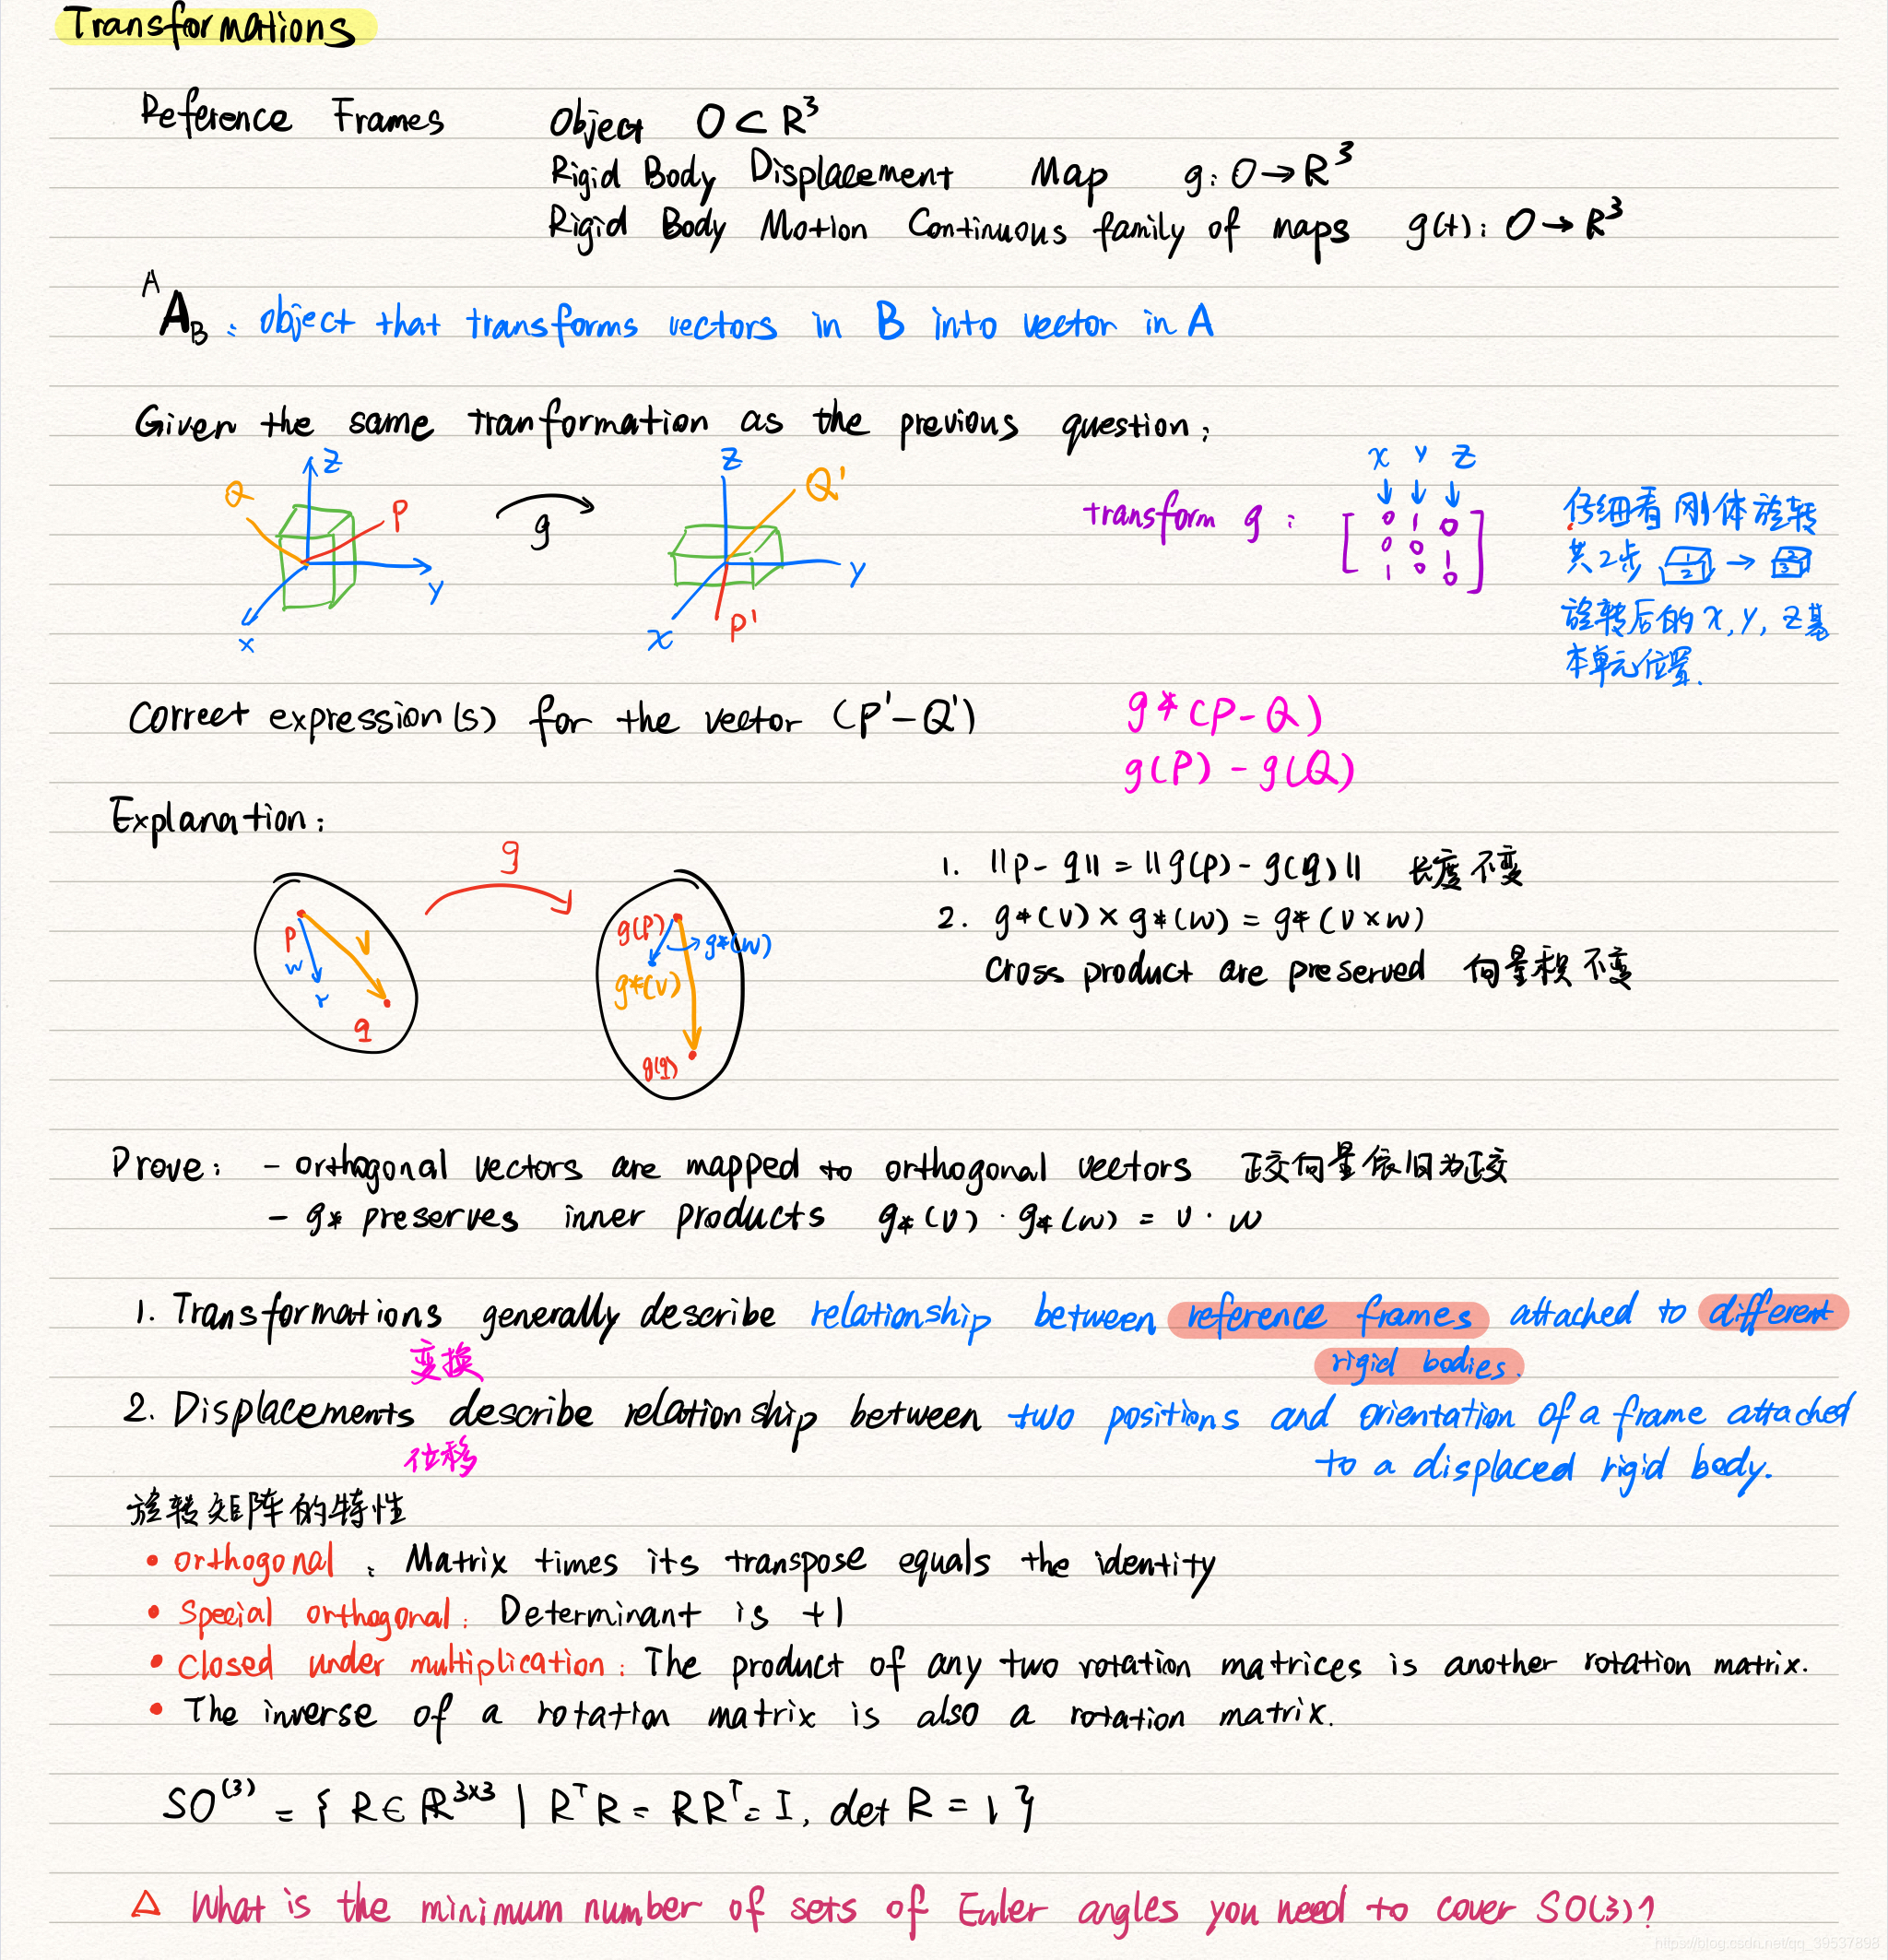 Transformations
Reference Frames Object O ⊂ R³
Rigid Body Displacement Map g: O→R³
Rigid Body Motion Continuous family of maps g(t): O→R³
ᴬA_B : object that transforms vectors in B into vector in A
Given the same tranformation as the previous question:
Z Q P Y x
g
Z Q' Y x P'
x y z
↓ ↓ ↓
transform g : [ 0 1 0
0 0 1
1 0 0 ]
仔细看刚体旋转
共2步 1 2 → 2 3
旋转后的x, y, z基
本单元位置.
Correct expression(s) for the vector (P'-Q')
g*(P-Q)
g(P) - g(Q)
Explanation:
g
p w v r q
g(P) g*(w) g*(v) g(q)
1. ||p-q|| = ||g(p)-g(q)|| 长度不变
2. g*(v) × g*(w) = g*(v×w)
Cross product are preserved 向量积不变
Prove: - orthogonal vectors are mapped to orthogonal vectors 正交向量依旧为正交
- g* preserves inner products g*(v) · g*(w) = v · w
1. Transformations generally describe relationship between reference frames attached to different
变换 rigid bodies.
2. Displacements describe relationship between two positions and orientation of a frame attached
位移 to a displaced rigid body.
旋转矩阵的特性
• orthogonal : Matrix times its transpose equals the identity
• Special orthogonal: Determinant is +1
• Closed under multiplication: The product of any two rotation matrices is another rotation matrix.
• The inverse of a rotation matrix is also a rotation matrix.
SO⁽³⁾ = { R ∈ ℝ³ˣ³ | RᵀR = RRᵀ = I, det R = 1 }
△ What is the minimum number of sets of Euler angles you need to cover SO(3)?
https://blog.csdn.net/qq_39537898